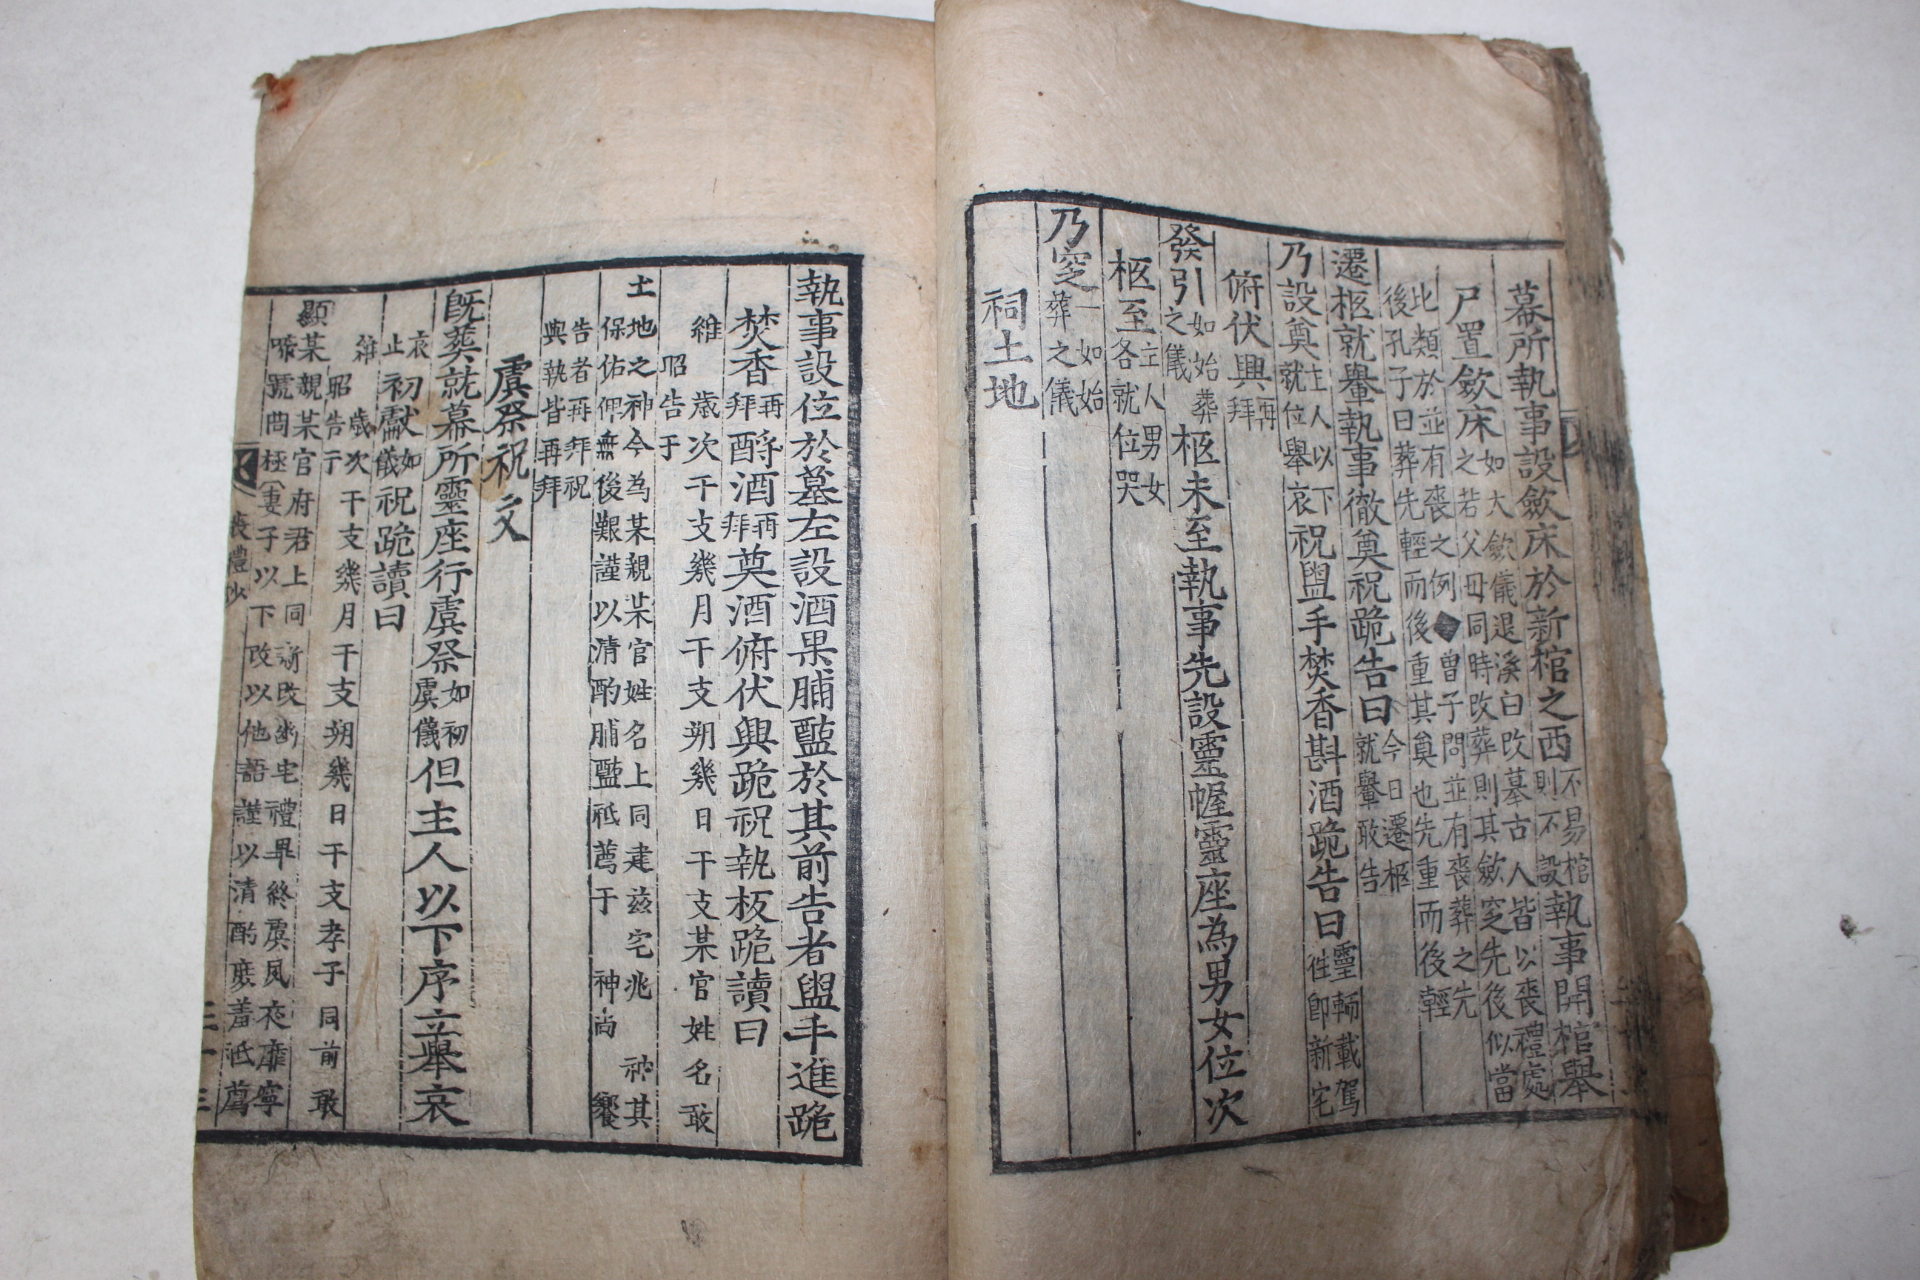 幕所執事設斂床於新棺之西不易棺則不設執事開棺舉
尸置斂床之如大斂儀退溪曰改墓古人皆以喪禮處之若父母同時改葬則其斂窆先後似當
比類於並有喪之例◆曾子問並有喪葬之先後孔子曰葬先輕而後重其奠也先重而後輕
遷柩就轝執事徹奠祝跪告曰今日遷柩就轝敢告
乃設奠主人以下就位舉哀祝盥手焚香斟酒跪告曰靈輀載駕往卽新宅
俯伏興再拜
發引如始葬之儀柩未至執事先設靈幄靈座為男女位次
柩至主人男女各就位哭
乃窆一如始葬之儀
祠土地
執事設位於墓左設酒果脯醢於其前告者盥手進跪
焚香再拜酹酒再拜奠酒俯伏興跪祝執板跪讀曰
維歲次干支幾月干支朔幾日干支某官姓名敢
昭告于
土地之神今為某親某官姓名上同建玆宅兆神其
保佑俾無後艱謹以清酌脯醢祗薦于神尚饗
告者再拜祝與執皆再拜
虞祭祝文
旣葬就幕所靈座行虞祭如初虞儀但主人以下序立舉哀
哀止初獻如儀祝跪讀曰
維歲次干支幾月干支朔幾日干支孝子同前敢
昭告于
顯某親某官府君上同新改幽宅禮畢終虞夙夜靡寧
啼號罔極妻子以下改以他語謹以清酌庶羞祗薦
喪禮抄
二十三